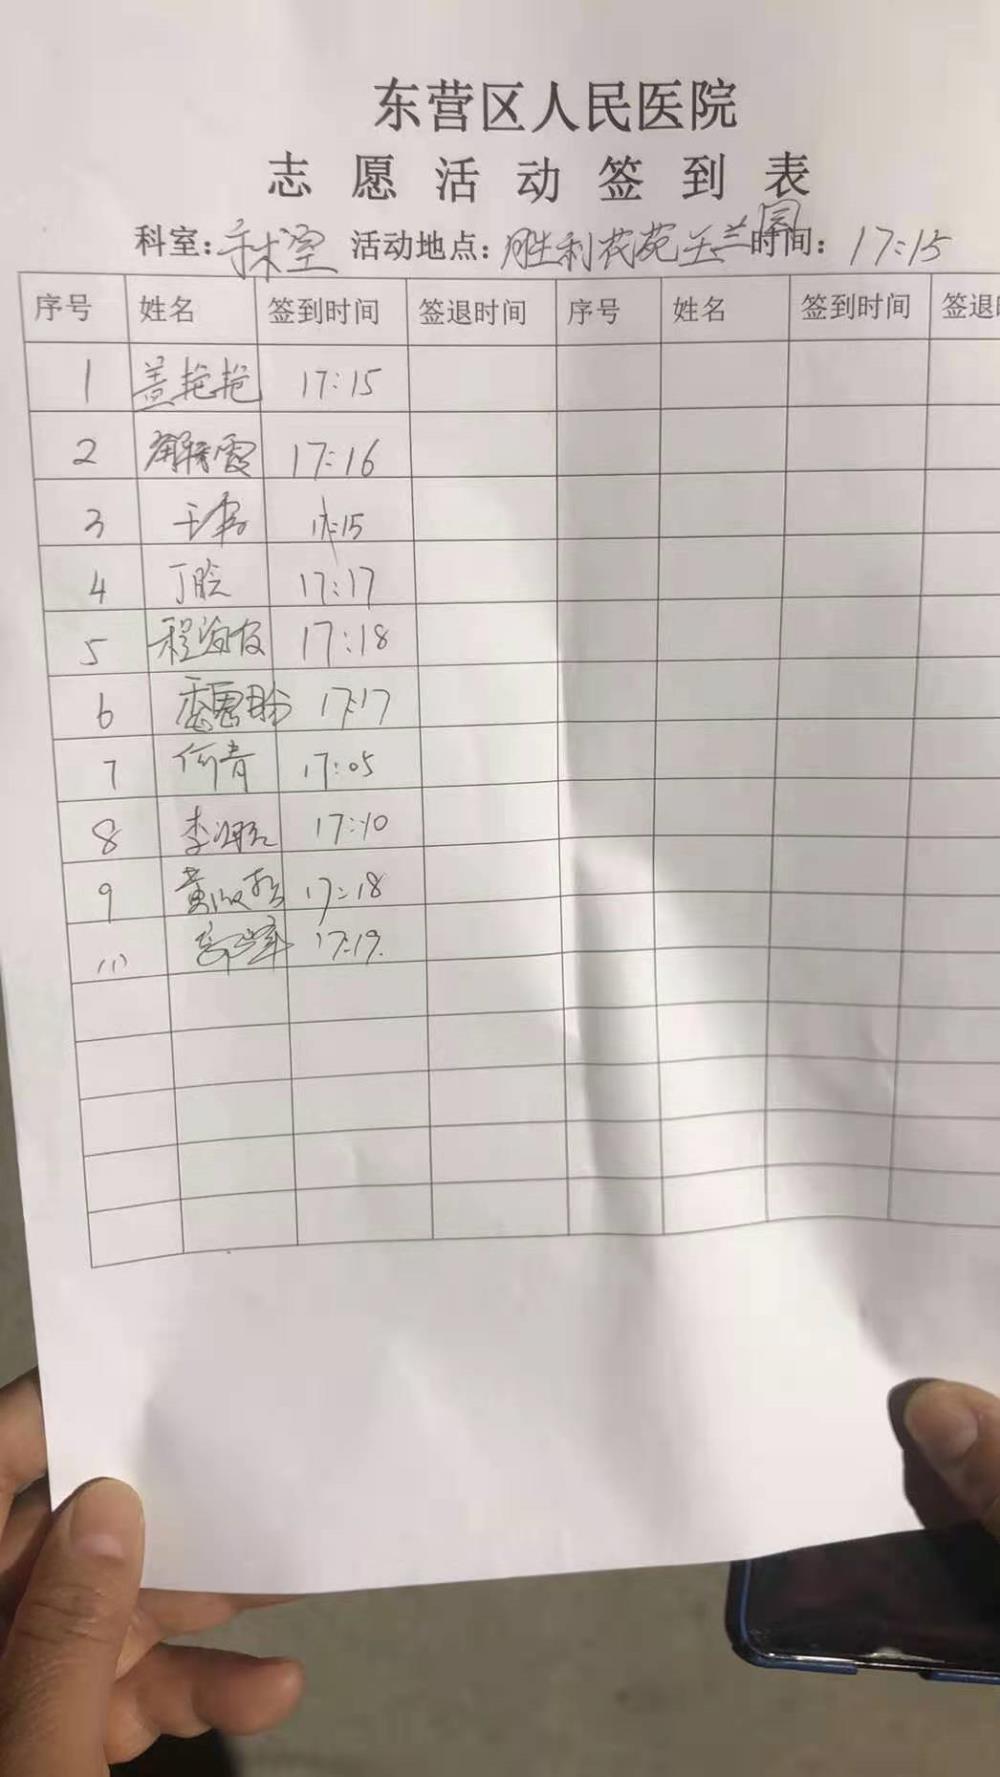 东营区人民医院
志愿活动签到表
科室：手术室 活动地点：胜利花苑玉兰园 时间：17:15
序号 姓名 签到时间 签退时间 序号 姓名 签到时间 签退
1 盖艳艳 17:15
2 解霞 17:16
3 17:15
4 丁 17:17
5 程海 17:18
6 17:17
7 何青 17:05
8 李 17:10
9 黄 17:18
17:19